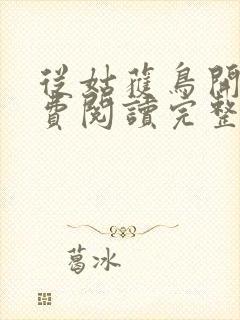 從姑獲鳥開
費閱讀完整
葛冰